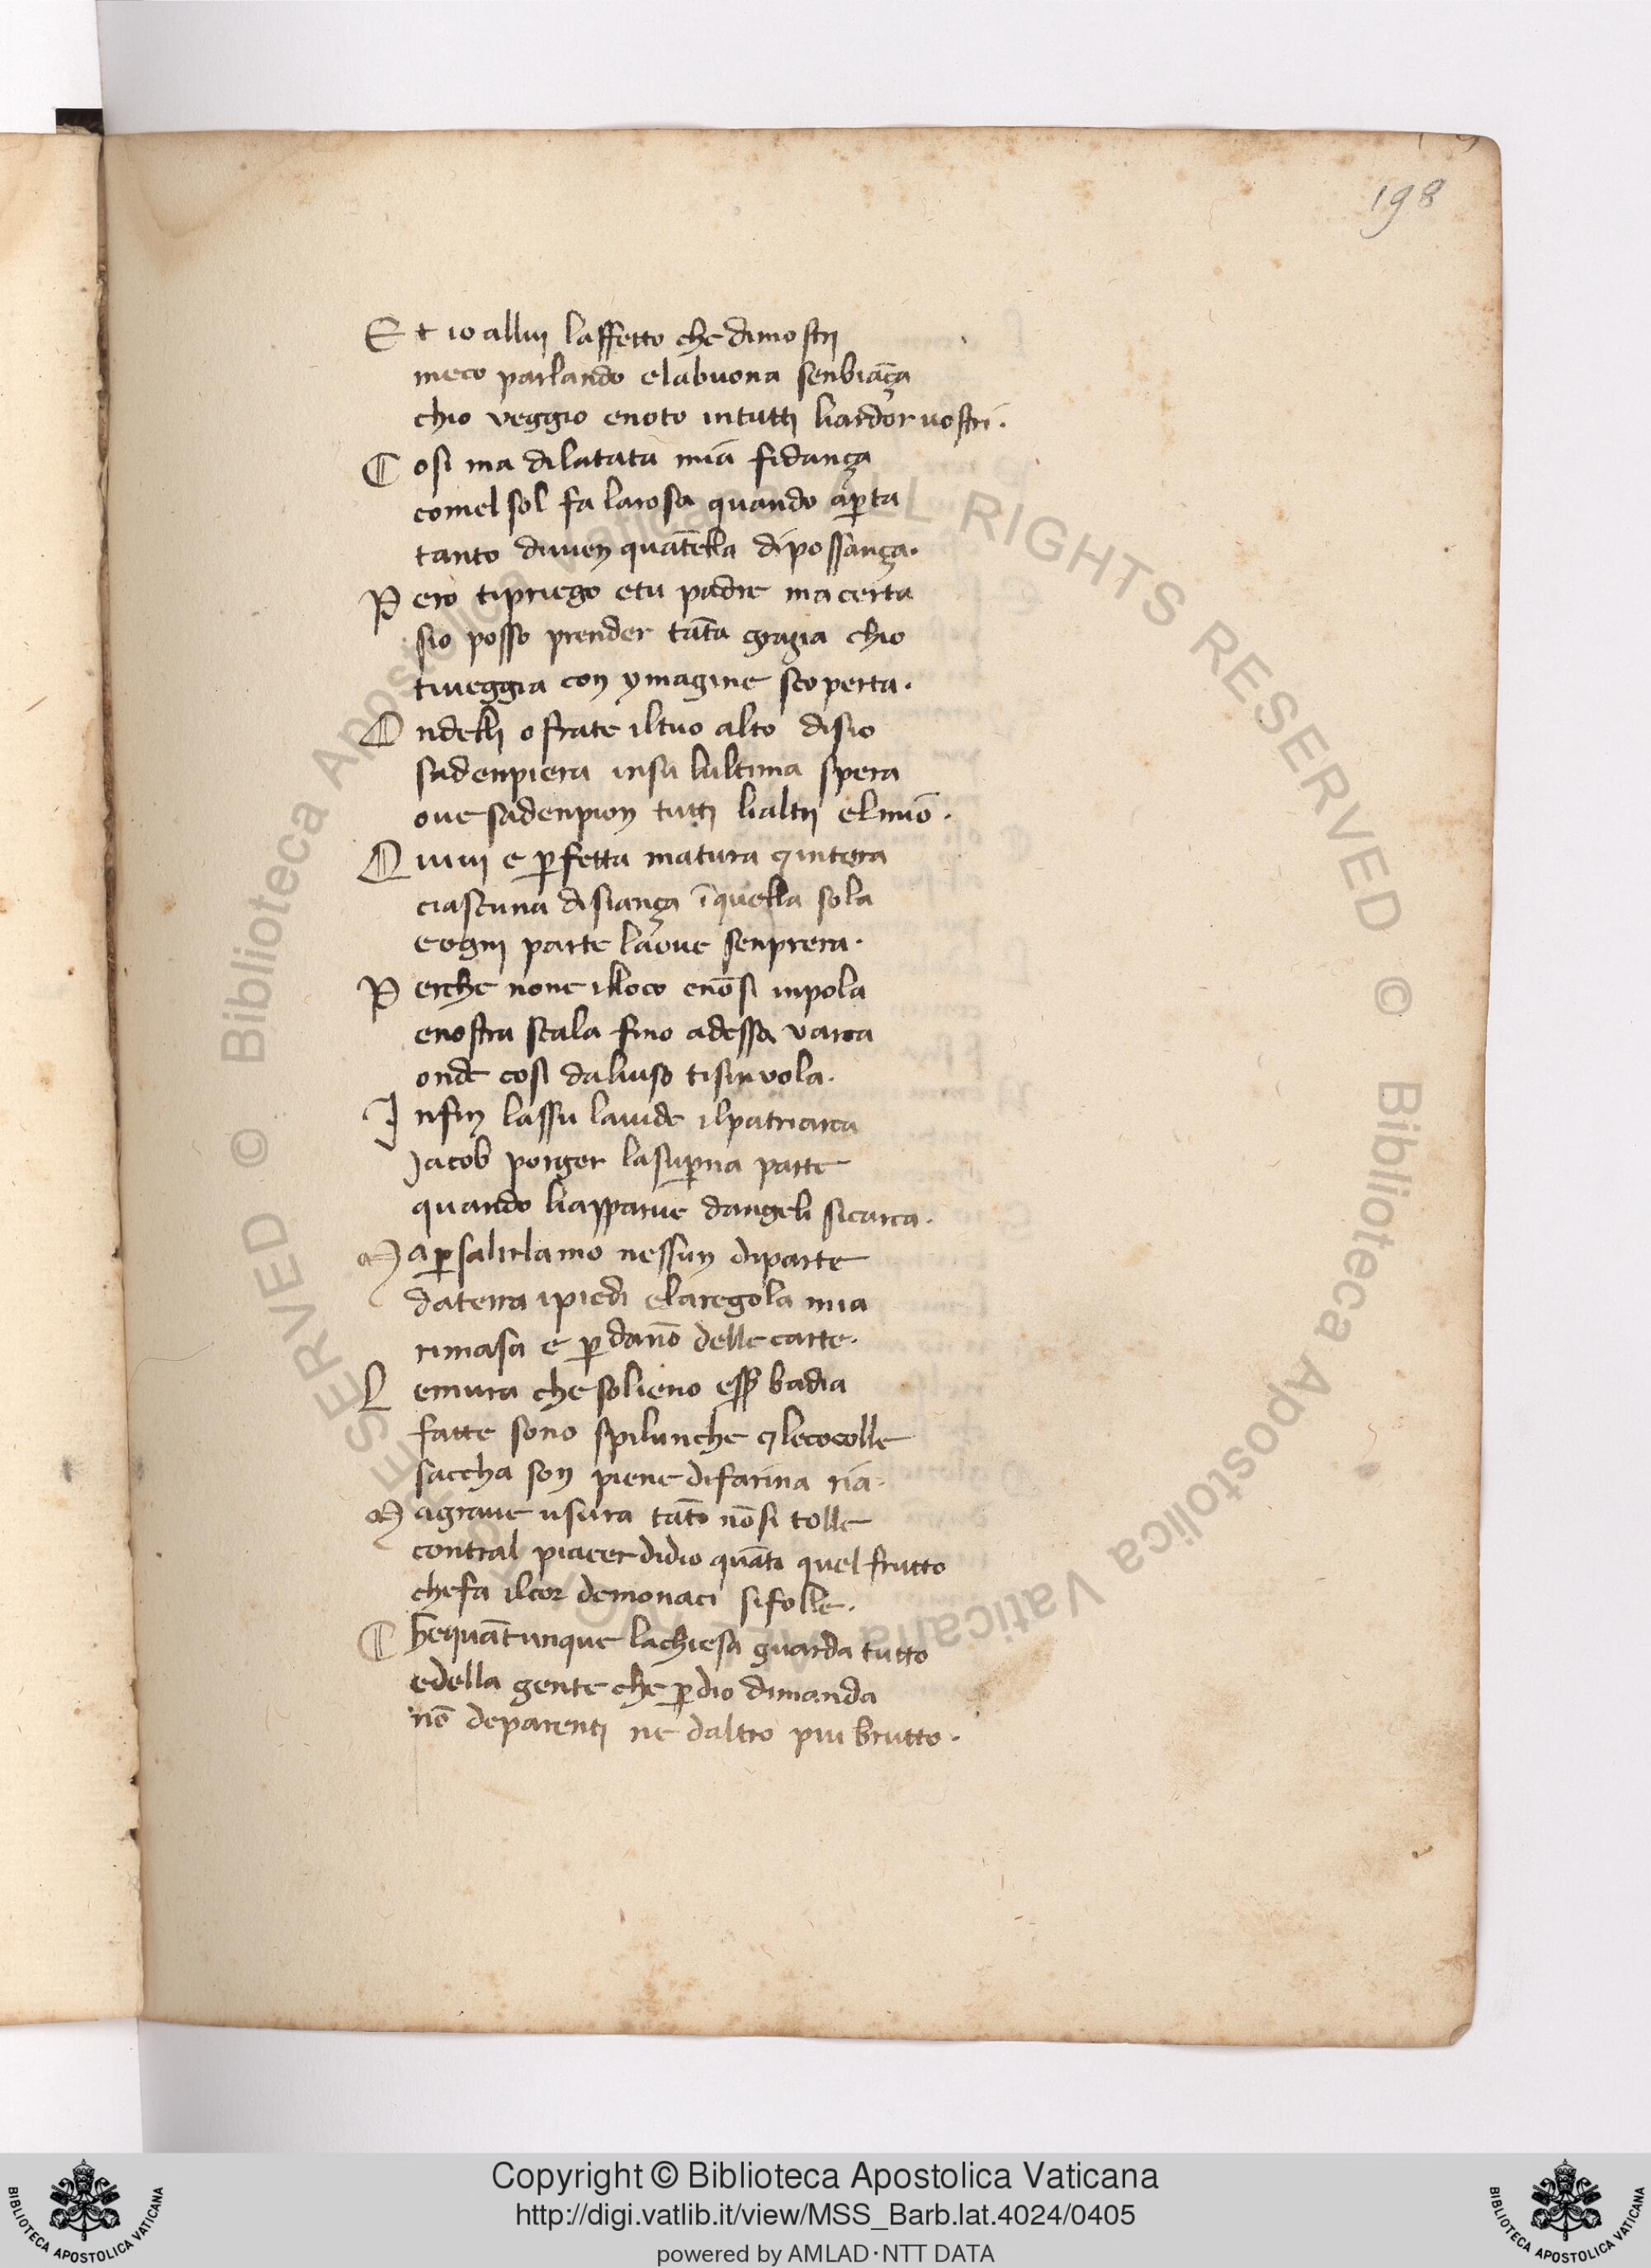 198
Et io allui laffetto che dimostri
meco parlando elabuona senbiāça
chio veggio enoto intutti liardor uostri.
Cosi ma dilatata mia fidança
comel sol fa larosa quando ap̄ta
tanto diuien quāt̄ella dipossança.
Pero tipriego etu padre macerta
sio posso prender tāta gragia chio
tiueggia con ymagine scoperta.
Ondelli o frate iltuo alto disio
sadenpiera insu lultima spera
oue sadenpion tutti lialtri elmio.
Quiui e p̄fetta matura ⁊ intera
ciascuna disiança ī quella sola
e ogni parte laoue senprera.
Perche none illoco enōsi inpola
enostra scala fino adessa varca
onde cosi daluiso tisinuola.
Infin lassu lauide ilpatriarca
Jacob porger lasup̄na parte
quando liapparue dangeli sicarca.
Map̄salirlamo nessun diparte
daterra ipiedi elaregola mia
rimasa e p̄ dāno delle carte.
Lemura che solieno ess̄ badia
fatte sono spilunche ⁊ lecocolle
saccha son piene difarina ria.
Magraue usura tāto nōsi tolle
contral piacer didio quāto quel frutto
chefa ilcor demonaci sifolle.
Chequātunque lachiesa guarda tutto
edella gente che p̄dio dimanda
nō deparenti ne daltro piu brutto.
© Biblioteca Apostolica Vaticana ALL RIGHTS RESERVED © Biblioteca Apostolica Vaticana ALL RIGHTS RESERVED
Copyright © Biblioteca Apostolica Vaticana
http://digi.vatlib.it/view/MSS_Barb.lat.4024/0405
powered by AMLAD·NTT DATA
BIBLIOTECA APOSTOLICA VATICANA
BIBLIOTECA APOSTOLICA VATICANA